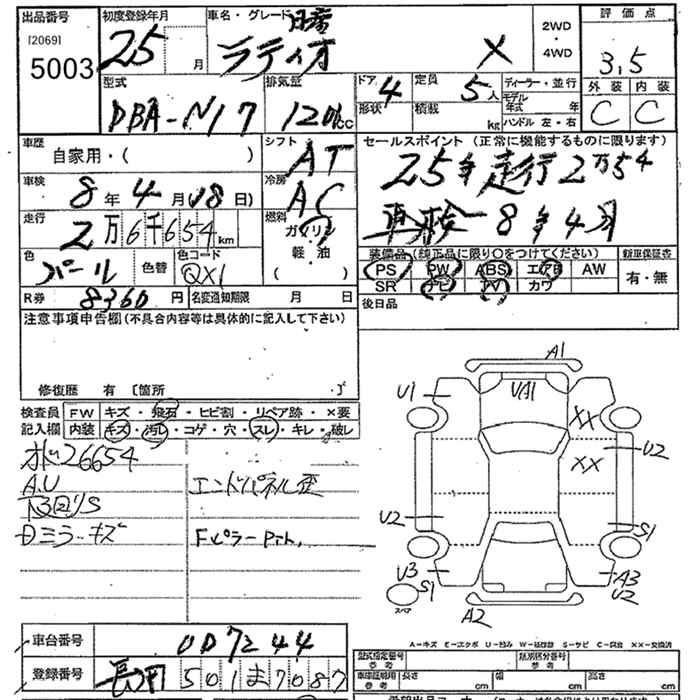 出品番号 初度登録年月 車名・グレード 日産 評価点
[2069] 5003 25 月 ラティオ X 2WD・4WD 3.5
外装 内装
C C
型式 排気量 ドア 4 定員 5人 ディーラー・並行
形状 積載 kg モデル年式 年
DBA-N17 1200cc ハンドル 左・右
車歴 シフト セールスポイント (正常に機能するものに限ります)
自家用・( ) AT 25年走行2万5千
車検 8年4月18日) 冷房 AC 車検-8年4月
走行 2万6千654km 燃料 ガソリン
軽・油
( )
色 パール 色替 色コード QX1
装備品 (純正品に限り○をつけてください) 新車保証書
PS PW ABS エアB AW 有・無
SR ナビ TV カワ
R券 8360円 名変通知期限 月 日 後日品
注意事項申告欄(不具合内容等は具体的に記入して下さい)
修復歴 有 〔箇所 ・〕
検査員 FW キズ・飛石・ヒビ割・リペア跡・×要
記入欄 内装 キズ・汚レ・コゲ・穴・スレ・キレ・破レ
26654
A.U エンドパネル歪
ミラーキズ Fピラー
A1
U1 UA1
XX
XX U2
U2 S1
U3 S1 A3 U2
スペア A2
A-キズ E-エクボ U-凹み W-補修跡 S-サビ C-腐食 XX-交換済
車台番号 007244
登録番号 長岡 501ま7087
型式指定番号 参考 類別区分番号 参考
車庫証明用 参考 長さ cm 幅 cm 高さ cm